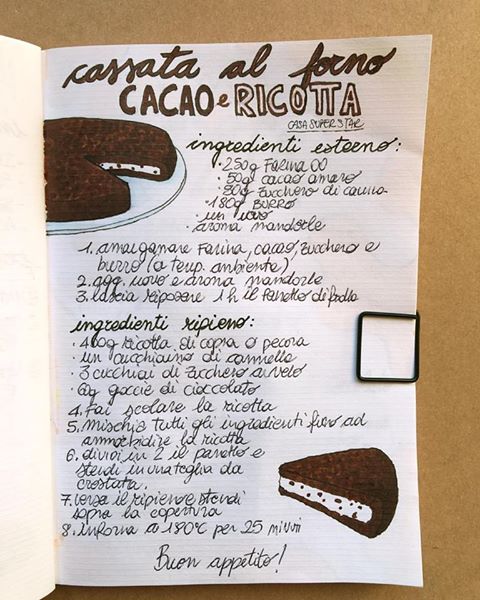 cassata al forno
CACAO e RICOTTA
CASA SUPER STAR
ingredienti esterno:
• 250g FARINA 00
50g cacao amaro
• 80g zucchero di canna
• 180g BURRO
• un uovo
• aroma mandorle
1. amalgamare farina, cacao, zucchero e
burro (a temp. ambiente)
2. agg. uovo e aroma mandorle
3. lascia riposare 1 h il panetto di frolla
ingredienti ripieno:
• 400g ricotta di capra o pecora
• un cucchiaino di cannella
• 3 cucchiai di zucchero a velo
• 60g goccie di cioccolato
4. fai scolare la ricotta
5. mischia tutti gli ingredienti fino ad
ammorbidire la ricotta
6. dividi in 2 il panetto e
stendi in una teglia da
crostata.
7. versa il ripieno e stendi
sopra la copertura
8. inforna a 180°C per 25 minuti
Buon appetito!